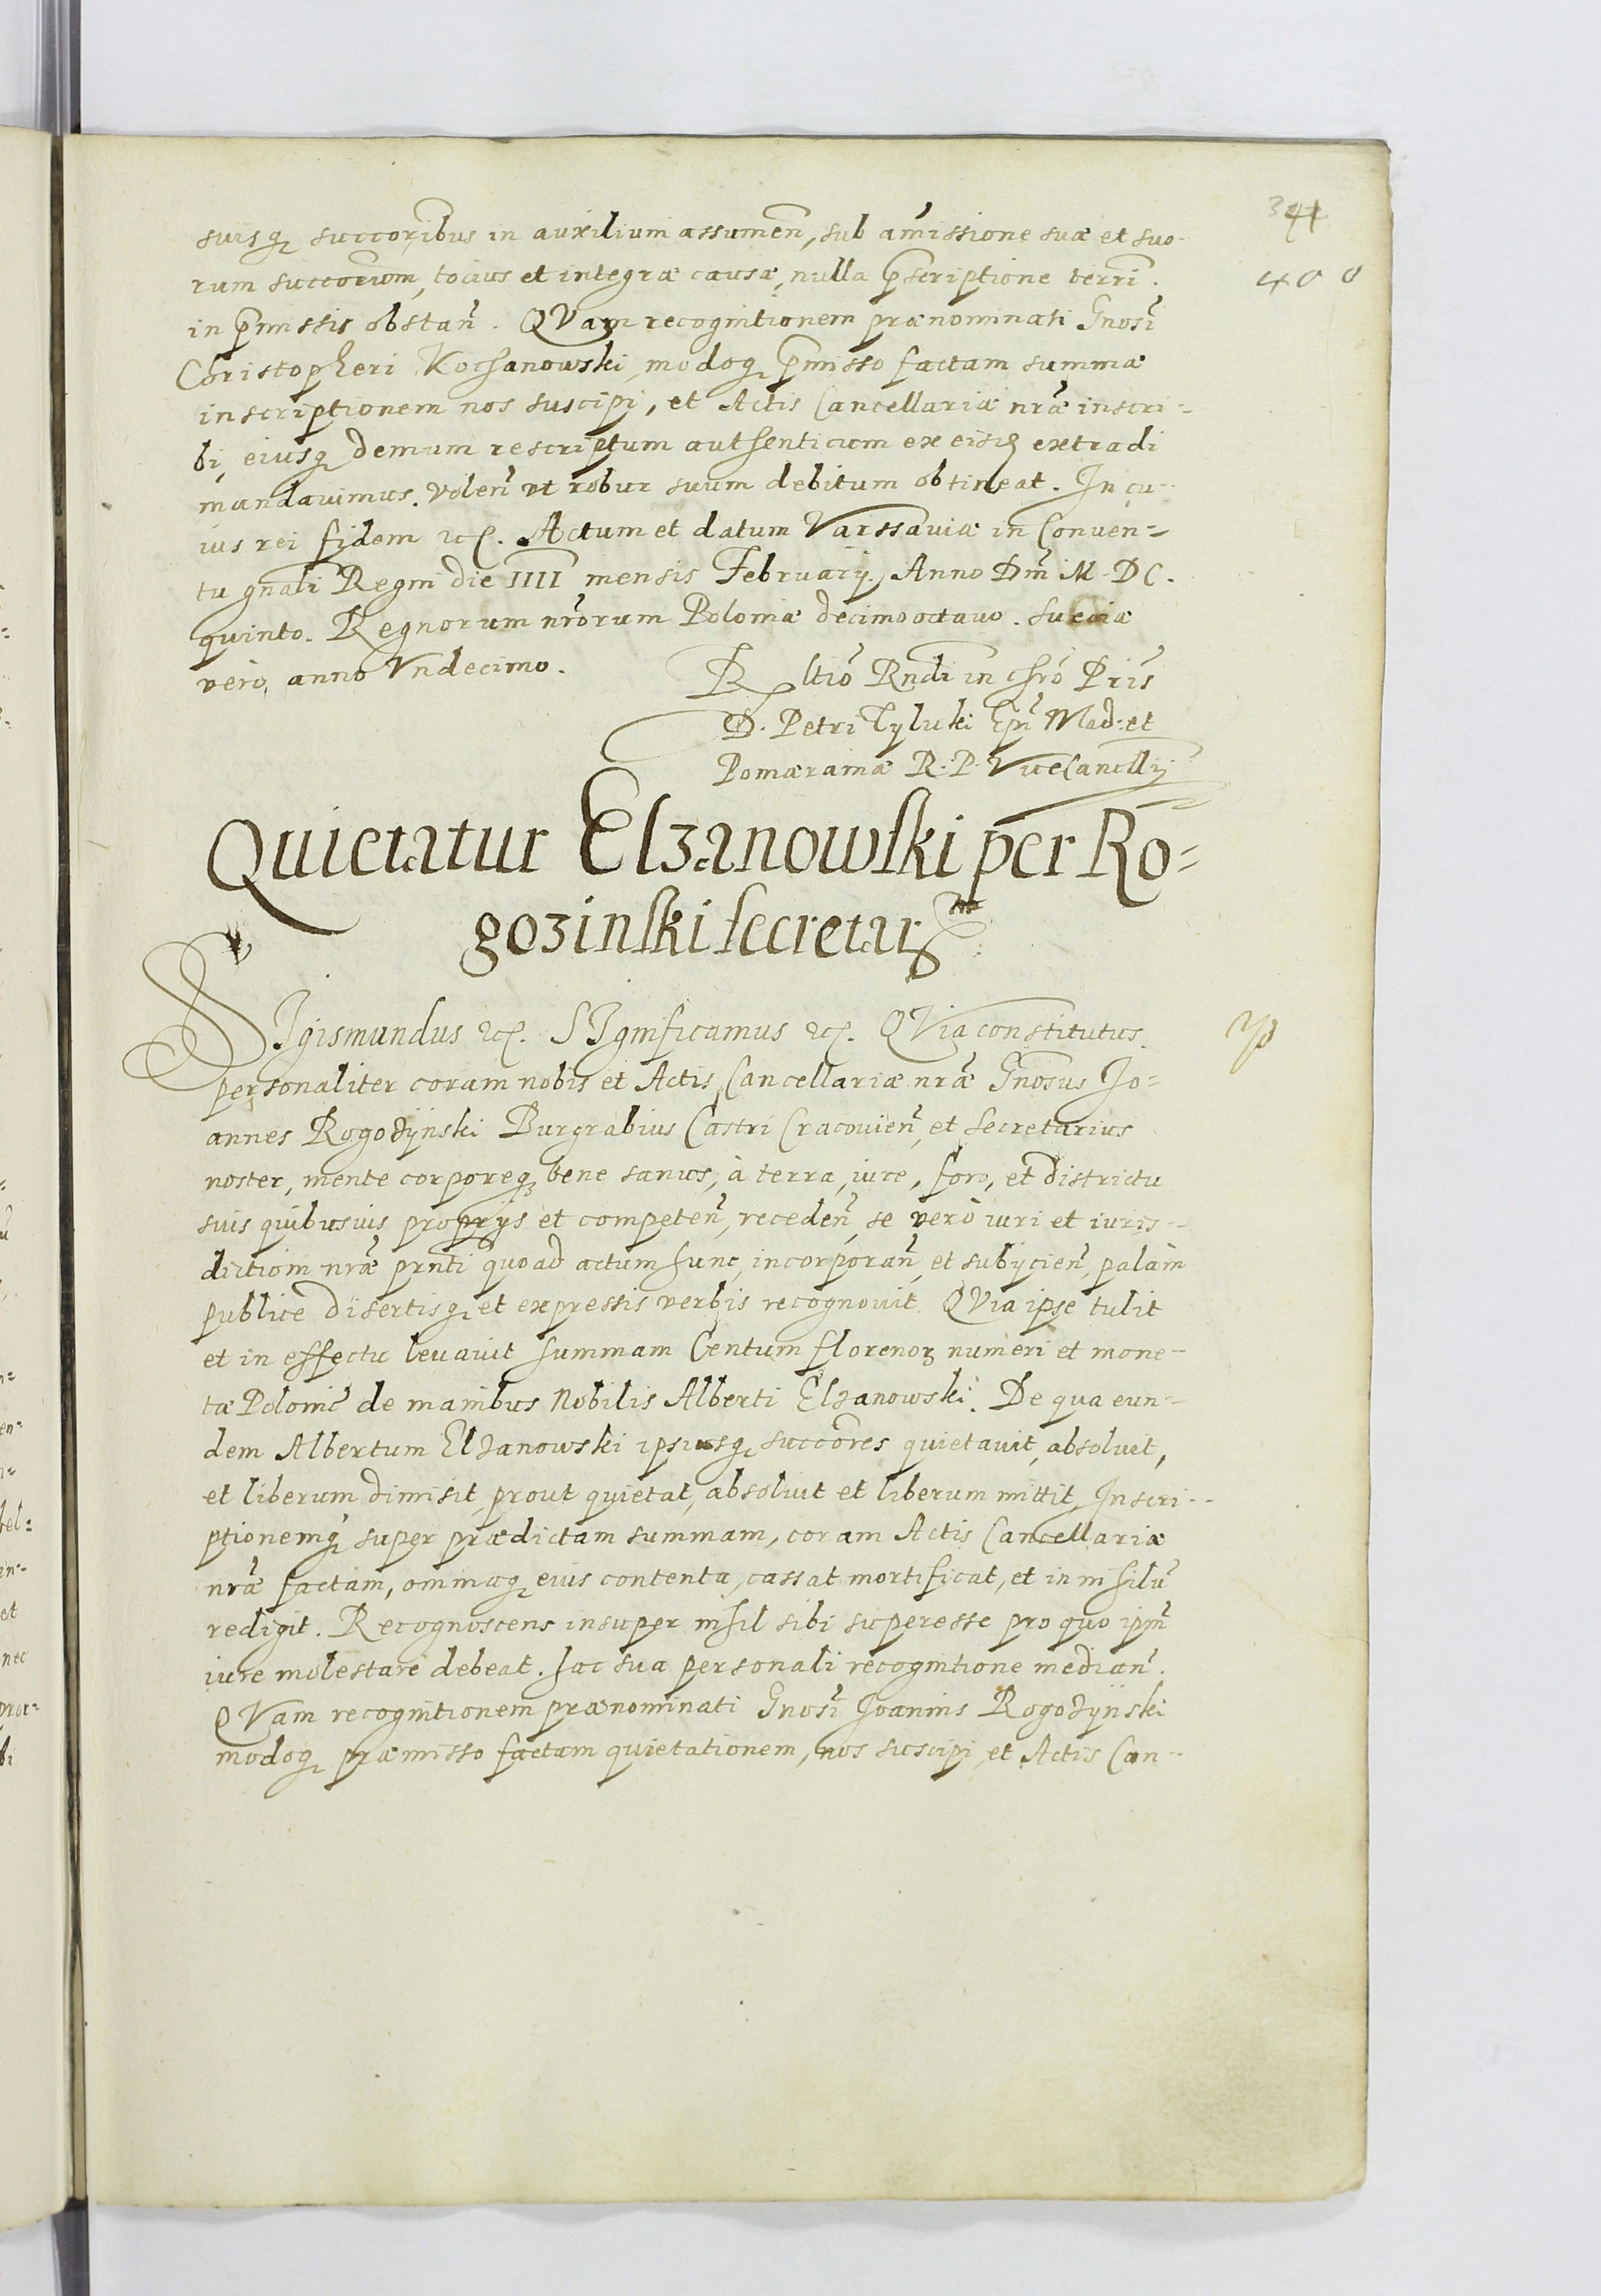 341
400
suisq; succoribus in auxilium assumen, sub amissione suæ et suo-
rum succorum, tocius et integræ causæ, nulla pscriptione terri.
in pmissis obstan. QVam recognitionem prænominati Gnosi
Christopheri Kochanowski, modoq; pmisso factam summæ
inscriptionem nos suscipi, et Actis Cancellariæ nræ inscri-
bi, eiusq; demum rescriptum authenticum ex eisd extradi
mandauimus. volen vt robur suum debitum obtineat. In cu-
ius rei fidem etc. Actum et datum Varssauiæ in Conuen-
tu gnali Regni die IIII mensis February, Anno Dni M. DC.
quinto. Regnorum nrorum Poloniæ decimo octauo. Sueciæ
vero, anno Vndecimo.
R ltio Rndi in chro Pris
D. Petri Tyluki Epi Mad: et
Pomæraniæ R. P. ViceCancllÿ
Quietatur Elzanowski per Ro=
gozinski secretar
SIgismundus etc. SIgnificamus etc. QVia constitutus
personaliter coram nobis et Actis Cancellariæ nræ Gnosus Jo=
annes Rogozÿnski Burgrabius Castri Cracouien, et Secretarius
noster, mente corporeq; bene sanus, à terra, iure, foro, et districtu
suis quibusuis proprÿs et competen, receden, se verò iuri et iuris-
dictioni nræ prnti quo ad actum hunc, incorporan, et subÿcien, palàm
publice disertisq; et expressis verbis recognouit. QVia ipse tulit
et in effectu leuauit summam Centum florenoꝝ numeri et mone-
tæ Polonic de manibus Nobilis Alberti Elzanowski. De qua eun-
dem Albertum Elzanowski ipsiusq; succores quietauit, absoluit,
et liberum dimisit, prout quietat, absoluit et liberum mittit, Inscri-
ptionemq; super prædictam summam, coram Actis Cancellariæ
nræ factam, omniaq; eius contenta, cassat mortificat, et in nihilu
redigit. Recognoscens insuper nihil sibi superesse pro quo ipm
iure molestare debeat. hac sua personali recognitione median.
QVam recognitionem prænominati Gnosi Joannis Rogozÿnski
modoq; præmisso factam quietationem, nos suscipi, et Actis Can-